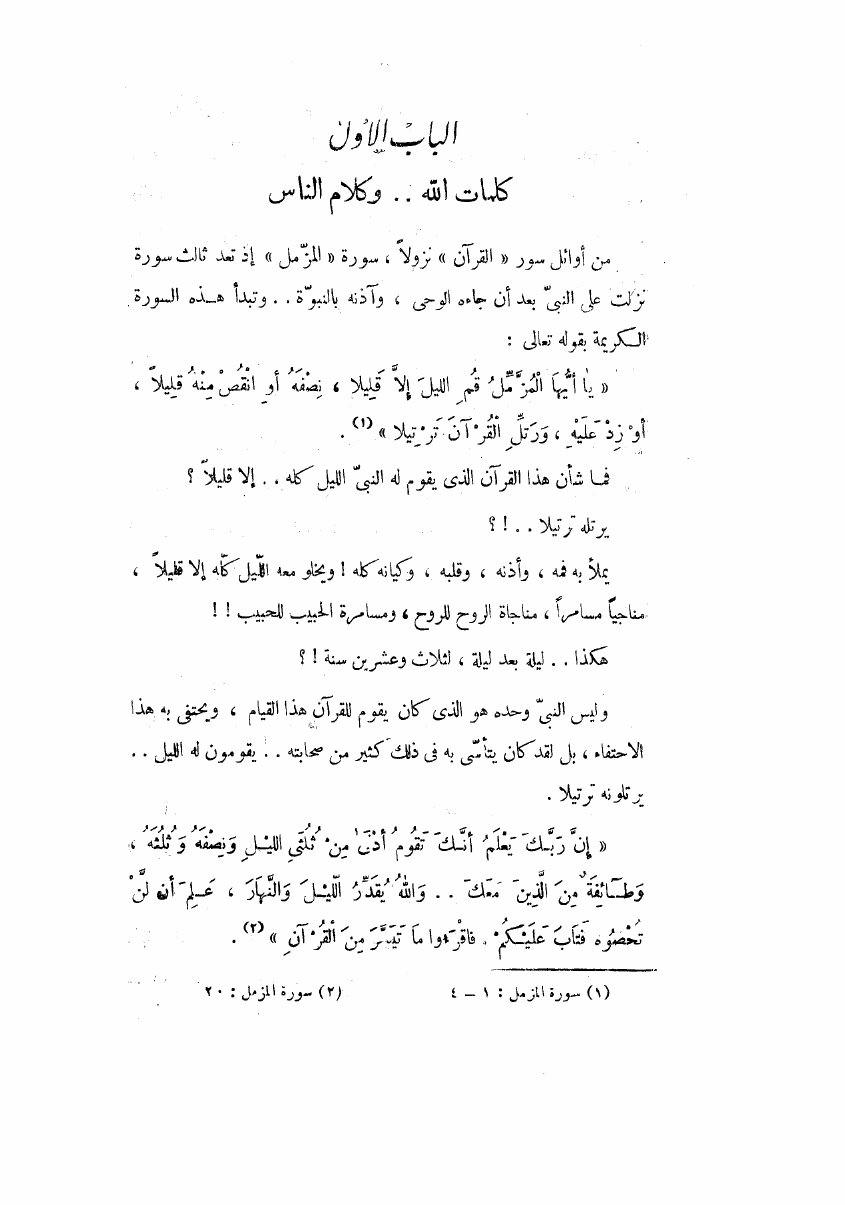 الباب الأول
كلمات الله .. وكلام الناس
من أوائل سور « القرآن » نزولاً ، سورة « المزّمل » إذ تعد ثالث سورة
نزلت على النبىّ بعد أن جاءه الوحى ، وآذنه بالنبوّة .. وتبدأ هـذه السورة
الكريمة بقوله تعالى :
« يا أَيُّهَا الْمُزَّمِّلُ قُمِ الليلَ إلاَّ قَلِيلا ، نِصْفَهُ أو انْقُصْ مِنْهُ قَلِيلاً ،
أوْ زِدْ عَلَيْهِ ، وَرَتِّلِ الْقُرْآنَ تَرْتِيلا » (١) .
فما شأن هذا القرآن الذى يقوم له النبىّ الليل كله .. إلا قليلاً ؟
يرتله ترتيلا .. ! ؟
يملأ به فمه ، وأذنه ، وقلبه ، وكيانه كله ! ويخلو معه اللّيل كلّه إلا قليلاً ،
مناجياً مسامراً ، مناجاة الروح للروح ، ومسامرة الحبيب للحبيب ! !
هكذا .. ليلة بعد ليلة ، لثلاث وعشرين سنة ! ؟
وليس النبىّ وحده هو الذى كان يقوم للقرآن هذا القيام ، ويحتفى به هذا
الاحتفاء ، بل لقد كان يتأسّى به فى ذلك كثير من صحابته .. يقومون له الليل ..
يرتلونه ترتيلا .
« إنَّ رَبَّكَ يَعْلَمُ أنَّكَ تَقُومُ أدْنَى مِنْ ثُلُثَىِ الليْـلِ وَنِصْفَهُ وَثُلُثَهُ ،
وَطَـائِفَةٌ مِنَ الَّذِينَ مَعَكَ .. وَاللهُ يُقَدِّرُ اللَّيْـلَ وَالنَّهَارَ ، عَـلِمَ أن لَنْ
تُحْصُوه فَتَابَ عَلَيْـكُمْ . فاقْرَءوا مَا تَيَسَّرَ مِنَ الْقُرْآنِ » (٢) .
(١) سورة المزمل : ١ – ٤ (٢) سورة المزمل : ٢٠